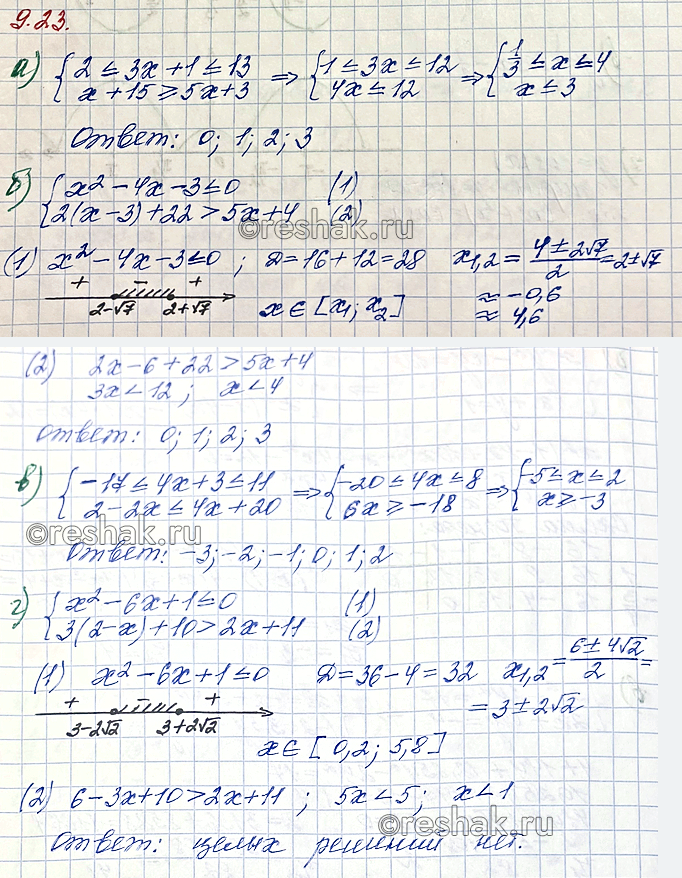 9.23.
а) { 2 ≤ 3x + 1 ≤ 13 ⇒ { 1 ≤ 3x ≤ 12 ⇒ { 1/3 ≤ x ≤ 4
x + 15 ≥ 5x + 3 4x ≤ 12 x ≤ 3
Ответ: 0; 1; 2; 3
б) { x² - 4x - 3 ≤ 0 (1)
2(x - 3) + 22 > 5x + 4 (2)
©reshak.ru
(1) x² - 4x - 3 ≤ 0 ; D = 16 + 12 = 28 x₁,₂ = (4 ± 2√7)/2 = 2 ± √7
+ - + ≈ -0,6
2-√7 2+√7 x ∈ [x₁; x₂] ≈ 4,6
(2) 2x - 6 + 22 > 5x + 4
3x < 12 ; x < 4
Ответ: 0; 1; 2; 3
в) { -17 ≤ 4x + 3 ≤ 11 ⇒ { -20 ≤ 4x ≤ 8 ⇒ { -5 ≤ x ≤ 2
2 - 2x ≤ 4x + 20 6x ≥ -18 x ≥ -3
©reshak.ru
Ответ: -3; -2; -1; 0; 1; 2
г) { x² - 6x + 1 ≤ 0 (1)
3(2 - x) + 10 > 2x + 11 (2)
(1) x² - 6x + 1 ≤ 0 D = 36 - 4 = 32 x₁,₂ = (6 ± 4√2)/2 =
+ - + = 3 ± 2√2
3-2√2 3+2√2
x ∈ [0,2; 5,8]
(2) 6 - 3x + 10 > 2x + 11 ; 5x < 5 ; x < 1
©reshak.ru
Ответ: целых решений нет.